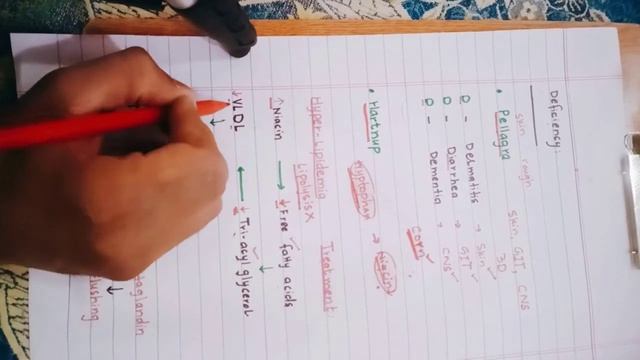 Deficiency:
skin rough skin, GIT, CNS
• Pellagra 3D
D - Delmatitis → Skin ✓
D - Diarrhea → GIT ✓
D - Dementia → CNS ✓
Corn ✓
• Hartnup
Tryptophan → Niacin
Hyper-Lipidemia Treatment
Lipolysis X
↑Niacin → ↓Free fatty acids
↓VLDL ← ↓Tri-acyl glycerol
aglandin
lushing